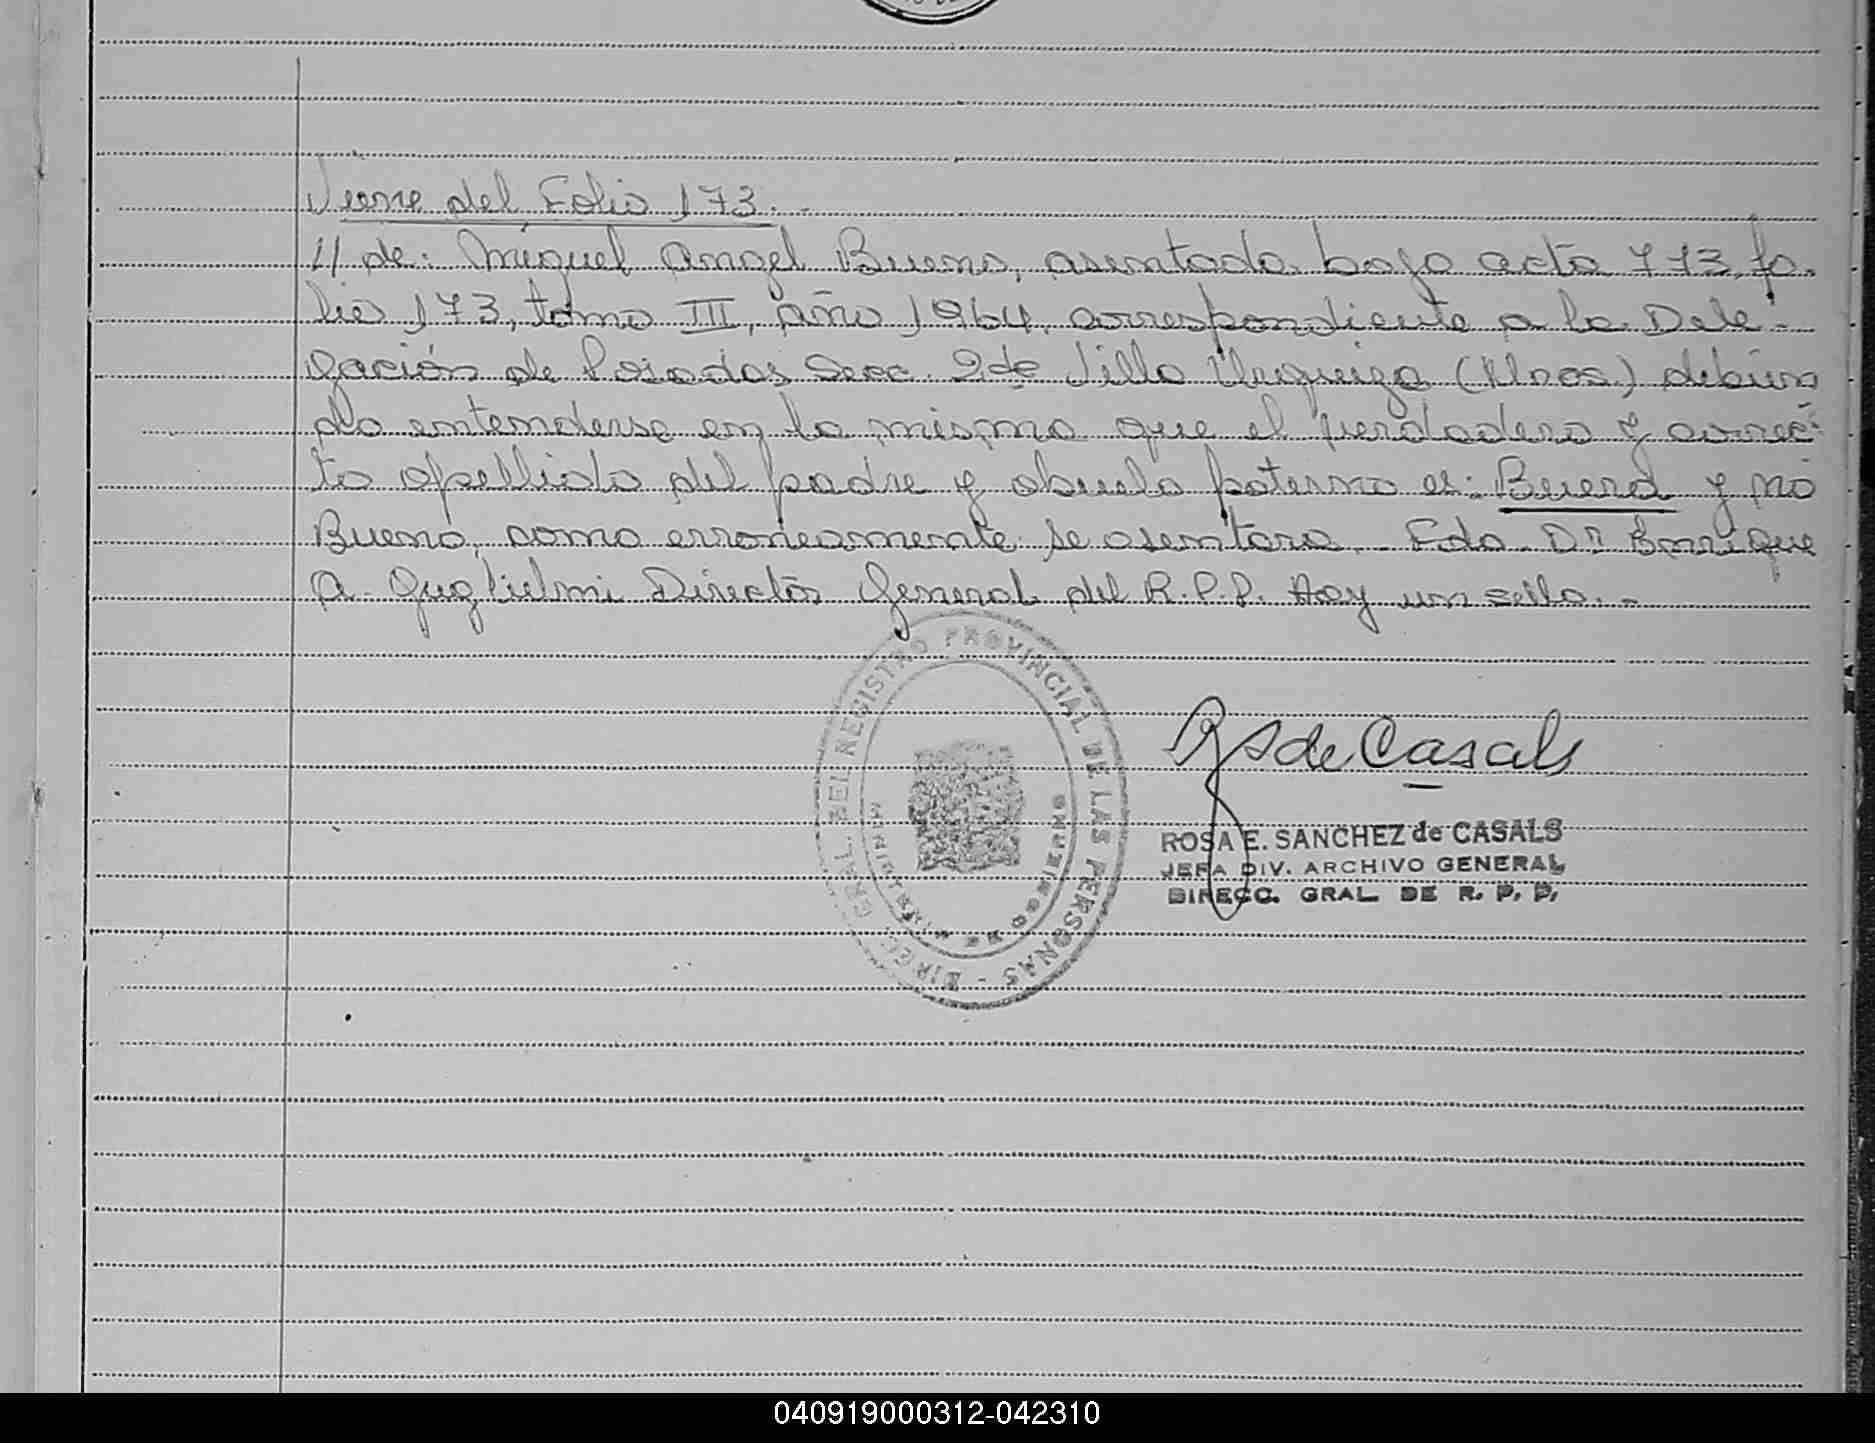 Viene del Folio 173.-
// de: Miguel Angel Bueno, asentada bajo acta 773, fo-
lio 173, tomo III, año 1964, correspondiente a la Dele-
gación de Posadas Secc. 2da Villa Urquiza (Mnes.) debien
do entenderse en la misma que el verdadero y correc-
to apellido del padre y abuelo paterno es: Buera y no
Bueno, como erroneamente se asentara. Fdo. Dr Enrique
A. Guglielmi Director General del R.P.P. Hay un sello.-
DIREC. GRAL. DEL REGISTRO PROVINCIAL DE LAS PERSONAS -
MINISTERIO DE GOBIERNO
RS de Casals
ROSA E. SANCHEZ de CASALS
JEFA DIV. ARCHIVO GENERAL
DIRECC. GRAL. DE R. P. P.
040919000312-042310